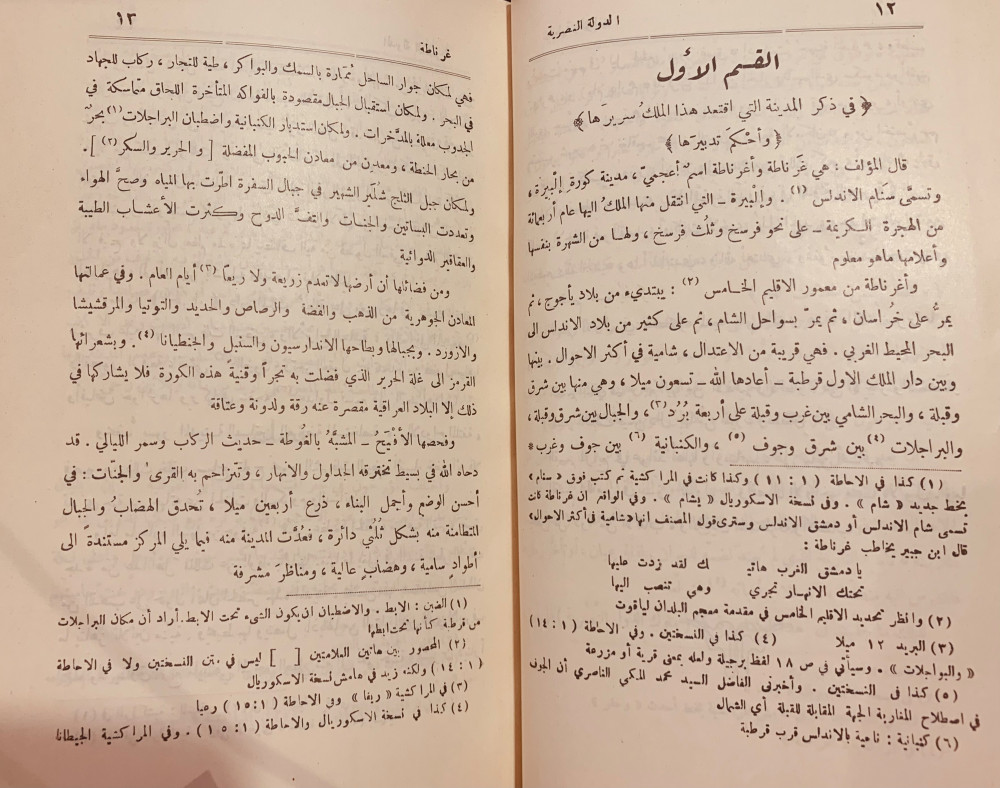 ١٢
الدولة النصرية
القسم الأول
﴿ في ذكر المدينة التي اقتعد هذا الملك سريرَها ﴾
﴿ وأحْكمَ تدبيرَها ﴾
قال المؤلف : هي غَرناطة وأغرناطة اسم أعجميّ ، مدينة كورة إلْبيرة ،
وتسمَّى سَنام الاندلس (١) . وإلْبيرة ـ التي انتقل منها الملكُ اليها عام أربعمائة
من الهجرة الكريمة ـ على نحو فرسخ وثلُث فرسخ ، ولهـا من الشهرة بنفسها
وأعلامها ماهو معلوم
وأغرناطة من معمور الاقليم الخـامس (٢) : يبتدىء من بلاد يأجوج ، ثم
يمرُّ على خراسان ، ثم يمرّ بسواحل الشام ، ثم على كثير من بلاد الاندلس الى
البحر المحيط الغربي . فهي قريبة من الاعتدال ، شامية في أكثر الاحوال . بينها
وبين دار الملك الاول قرطبة ـ أعادها الله ـ تسعون ميلا ، وهي منها بين شرق
وقبلة ، والبحر الشامي بين غرب وقبلة على أربعة بُرُد (٣) ، والجبال بين شرق وقبلة ،
والبراجلات (٤) بين شرق وجوف (٥) ، والكنبانية (٦) بين جوف وغرب *
(١) كذا في الاحاطة ( ١ : ١١ ) وكذا كانت في المراكشية ثم كتب فوق « سنام »
بخط جديد « شام » . وفى نسخة الاسكوريال « بشام » . وفى الواقع ان غرناطة كانت
تسمى شام الاندلس أو دمشق الاندلس وسترى قول المصنف انها « شامية فى أكثر الاحوال »
قال ابن جبير يخاطب غرناطة :
يادمشق الغرب هاتيـ ك لقد زدت عليها
تحتك الانهـار تجري وهي تنصب اليها
(٢) وانظر تحديد الاقليم الخامس في مقدمة معجم البلدان لياقوت
(٣) البريد ١٢ ميلا (٤) كذا فى النسختين . وفي الاحاطة ( ١ : ١٤ )
« والبواجلات » . وسيأتي في ص ١٨ لفظ برجيلة ولعله بمعنى قرية أو مزرعة
(٥) كذا فى النسختين . وأخبرنى الفاضل السيد محمد المكي الناصري أن الجوف
في اصطلاح المغاربة الجهة المقابلة للقبلة أي الشمال
(٦) كنبانية : ناحية بالاندلس قرب قرطبة
١٣
غرناطة
فهي لمكان جوار الساحل مُمتارة بالسمك والبواكر ، طية للتجار ، ركاب للجهاد
في البحر . ولمكان استقبال الجبال مقصودة بالفواكه المتأخرة اللحاق متماسكة في
الجدوب معللة بالمدَّخرات . ولمكان استدبار الكنبانية واضطبان البراجلات (١) بحرٌ
من بحار الحنطة ، ومعدن من معادن الحبوب المفضلة [ و الحرير والسكر (٢) ] .
ولمكان جبل الثلج شُلَير الشهير في جبال السفرة اطّرت بها المياه وصحَّ الهواء
وتعددت البساتين والجنـات والتفَّ الدوح وكثرت الأعشـاب الطيبة
والعقاقير الدوائية
ومن فضائلها أن أرضها لاتعدم زريعة ولا ريعاً (٣) أيام العام . وفي عمالتها
المعادن الجوهرية من الذهب والفضة والرصاص والحديد والتوتيا والمرقشيشا
والازورد . وبجبالها وبطاحها الاندارسيون والسنبل والجنطيانا (٤) . وبشعرائها
القرمز الى غلة الحرير الذي فضلت به تجراً وقنية هذه الكورة فلا يشاركها في
ذلك إلا البلاد العراقية مقصرة عنه رقة ولدونة وعتاقة
وفحصها الأفْيَحُ ـ المشبَّهُ بالغُوطة ـ حديث الركاب وسمر الليالي . قد
دحاه الله في بسيط تخترقه الجداول والانهار ، وتتزاحم به القرى والجنات : في
أحسن الوضع وأجمل البناء ، ذرع أربعين ميلا ، تُحدق الهضابُ والجبال
المتطامنة منه بشكل ثلُثَي دائرة ، فعُدّت المدينة منه فيما يلي المركز مستندةً الى
أطوادٍ سامية ، وهضابٍ عالية ، ومناظرَ مشرفة
(١) الضبن : الابط . والاضطبان ان يكون الشىء تحت الابط. أراد أن مكان البراجلات
من قرطبة كأنها تحت ابطها
(٢) المحصور بين هاتين العلامتين [ ] ليس في متن النسختين ولا في الاحاطة
( ١ : ١٤ ) ولكنه زيد في هامش نسخة الاسكوريال
(٣) في المراكشية « ريفا » وفى الاحاطة ( ١ : ١٥ ) رعيا
(٤) كذا في نسخة الاسكوريال والاحاطة ( ١ : ١٥ ) . وفي المراكشية الجيطانا